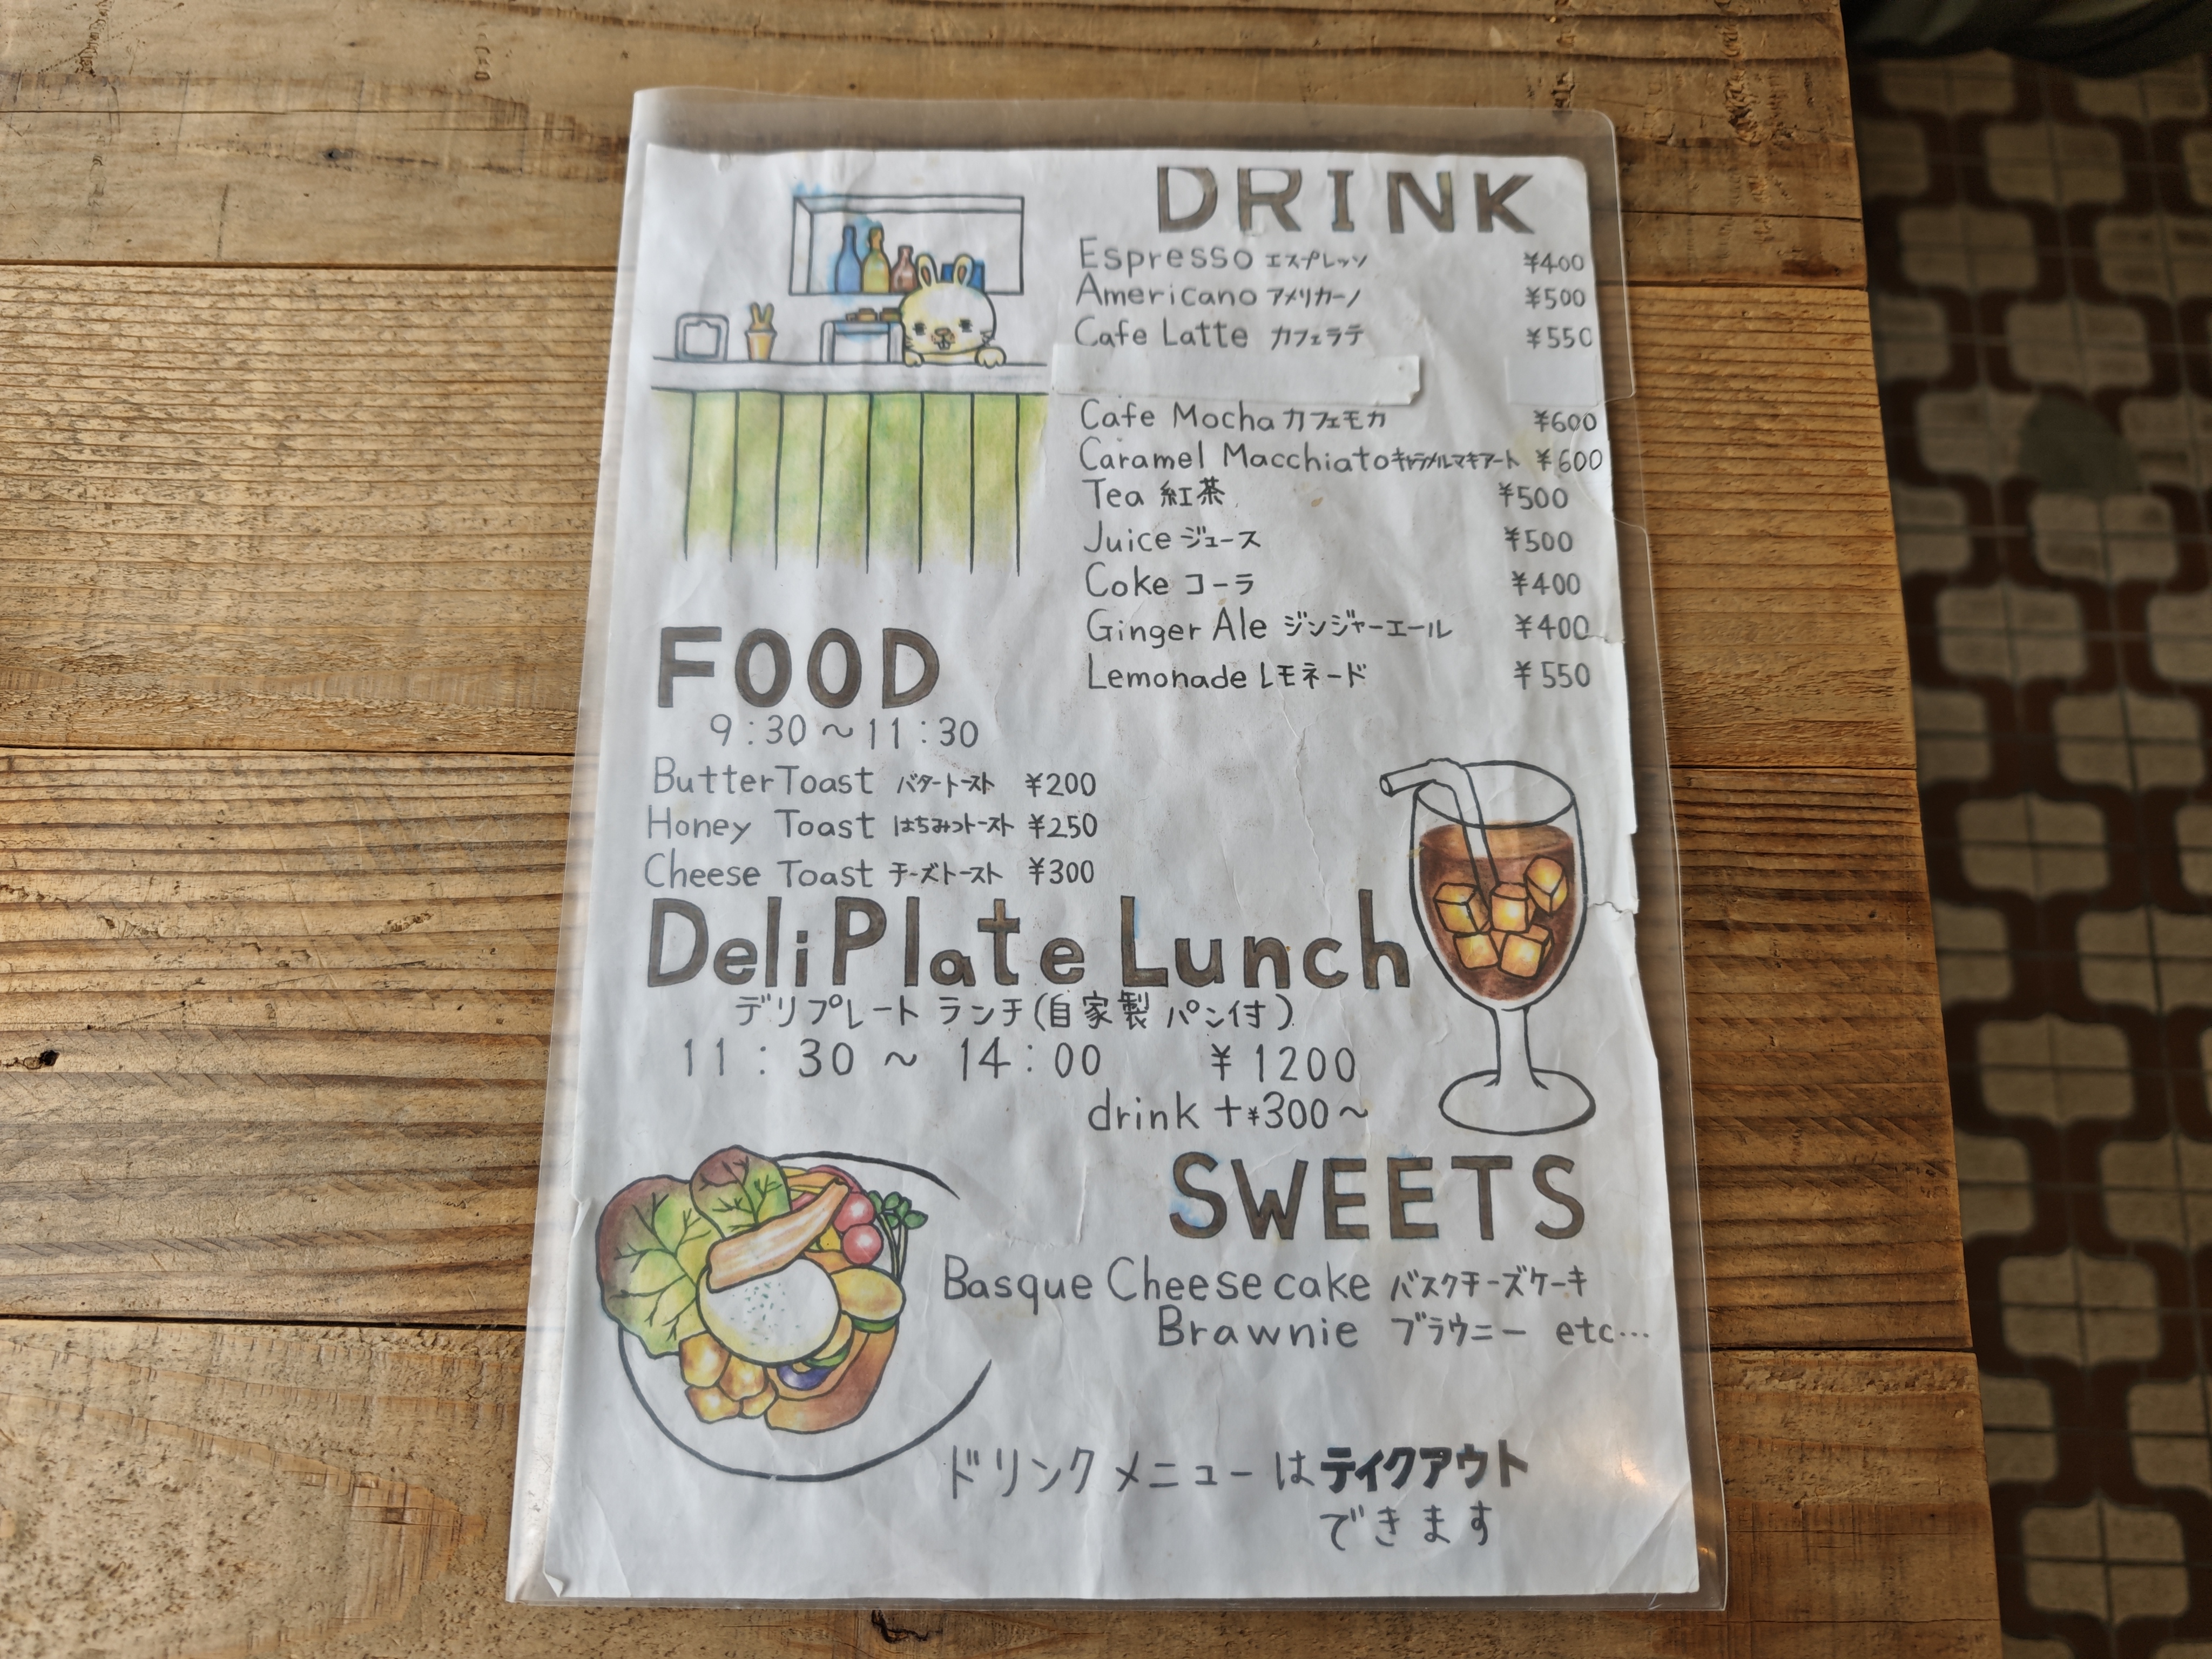 DRINK
Espresso エスプレッソ ¥400
Americano アメリカーノ ¥500
Cafe Latte カフェラテ ¥550
Cafe Mocha カフェモカ ¥600
Caramel Macchiato キャラメルマキアート ¥600
Tea 紅茶 ¥500
Juice ジュース ¥500
Coke コーラ ¥400
Ginger Ale ジンジャーエール ¥400
Lemonade レモネード ¥550
FOOD
9:30〜11:30
Butter Toast バタートースト ¥200
Honey Toast はちみつトースト ¥250
Cheese Toast チーズトースト ¥300
Deli Plate Lunch
デリプレート ランチ(自家製 パン付)
11:30 〜 14:00 ¥1200
drink +¥300〜
SWEETS
Basque Cheese cake バスクチーズケーキ
Brawnie ブラウニー etc…
ドリンクメニューはテイクアウト
できます